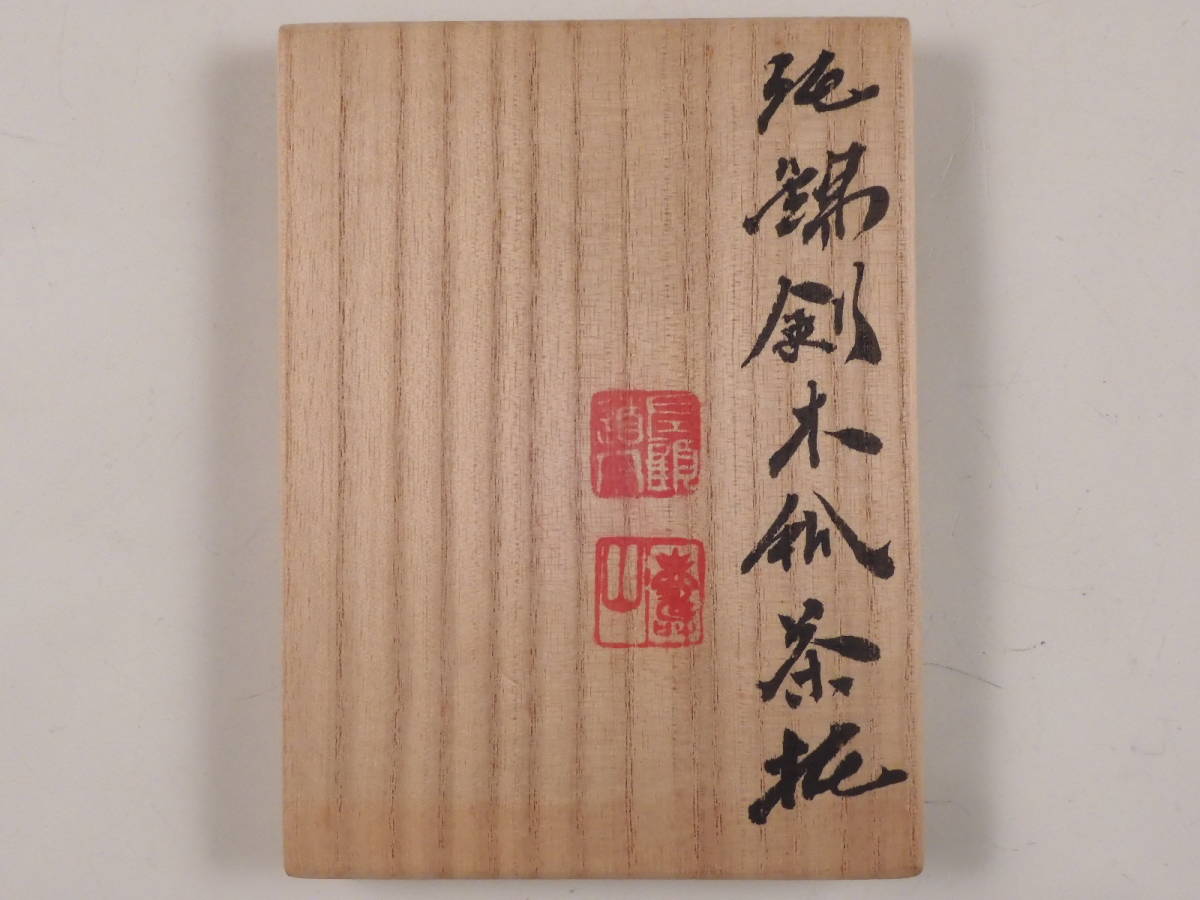 純錫剣木瓜茶托